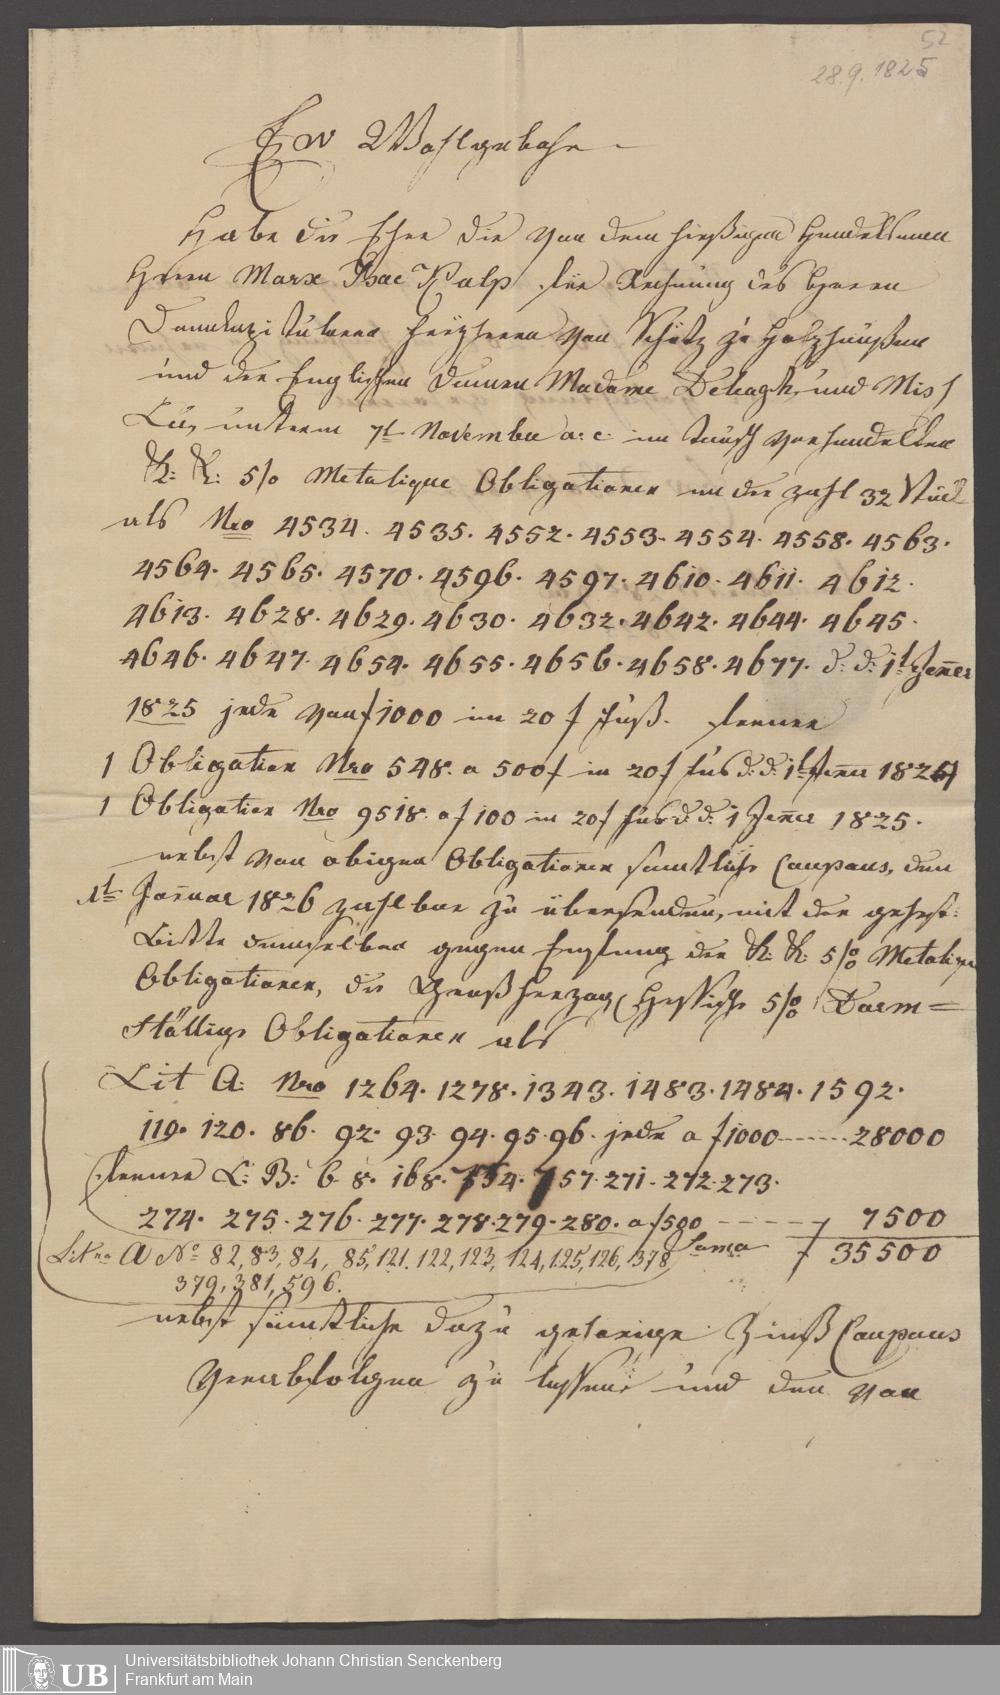 52
28.9.1825
Ew Wohlgebohrn
Habe die Ehre die von dem hießigen Handelsmann
Herrn Marx Isac Kalp für Rechnung des Herrn
Domkapitularn Freyherrn von Schütz zu Holzhaußen
und der Englischen Damen Madame und Miss
unterm 7t November a: c: im Tausch verhandelten
K: K: 5/o Metalique Obligationen an der Zahl 32 Stück
als Nro 4534. 4535. 4552. 4553. 4554. 4558. 4563.
4564. 4565. 4570. 4596. 4597. 4610. 4611. 4612.
4613. 4628. 4629. 4630. 4632. 4642. 4644. 4645.
4646. 4647. 4654. 4655. 4656. 4658. 4677. d: d: 1t Jenner
1825 jede von f 1000 im 20 f Fuß. ferner
1 Obligation Nro 548. a 500f in 20f Fus d: d: 1t Jenner
1 Obligation Nro 9518. a f 100 in 20f Fus d: d: 1 Jenner 1825.
nebst von obigen Obligationen samtliche Coupons, den
1t Januar 1826 zahlbar zu übersenden, mit der gehorst:
Bitte demselben gegen Empfang der K: K: 5/o Metalique
Obligationen, die Großherzog. Hessische 5/o Darm=
städtige Obligationen als
Lit A: Nro 1264. 1278. 1343. 1483. 1484. 1592.
119. 120. 86. 92. 93. 94. 95. 96. jede a f 1000 28000
ferner L: B: 6. 8. 168. 754. 757. 271. 272. 273.
274. 275. 276. 277. 278. 279. 280. a f 500 f 7500
Litra A No 82, 83, 84, 85, 121, 122, 123, 124, 125, 126, 378 Soma f 35500
379, 381, 596.
nebst sämtliche dazu gehörige Zinß Coupons
verabfolgen zu lassen und den von
UB Universitätsbibliothek Johann Christian Senckenberg
Frankfurt am Main